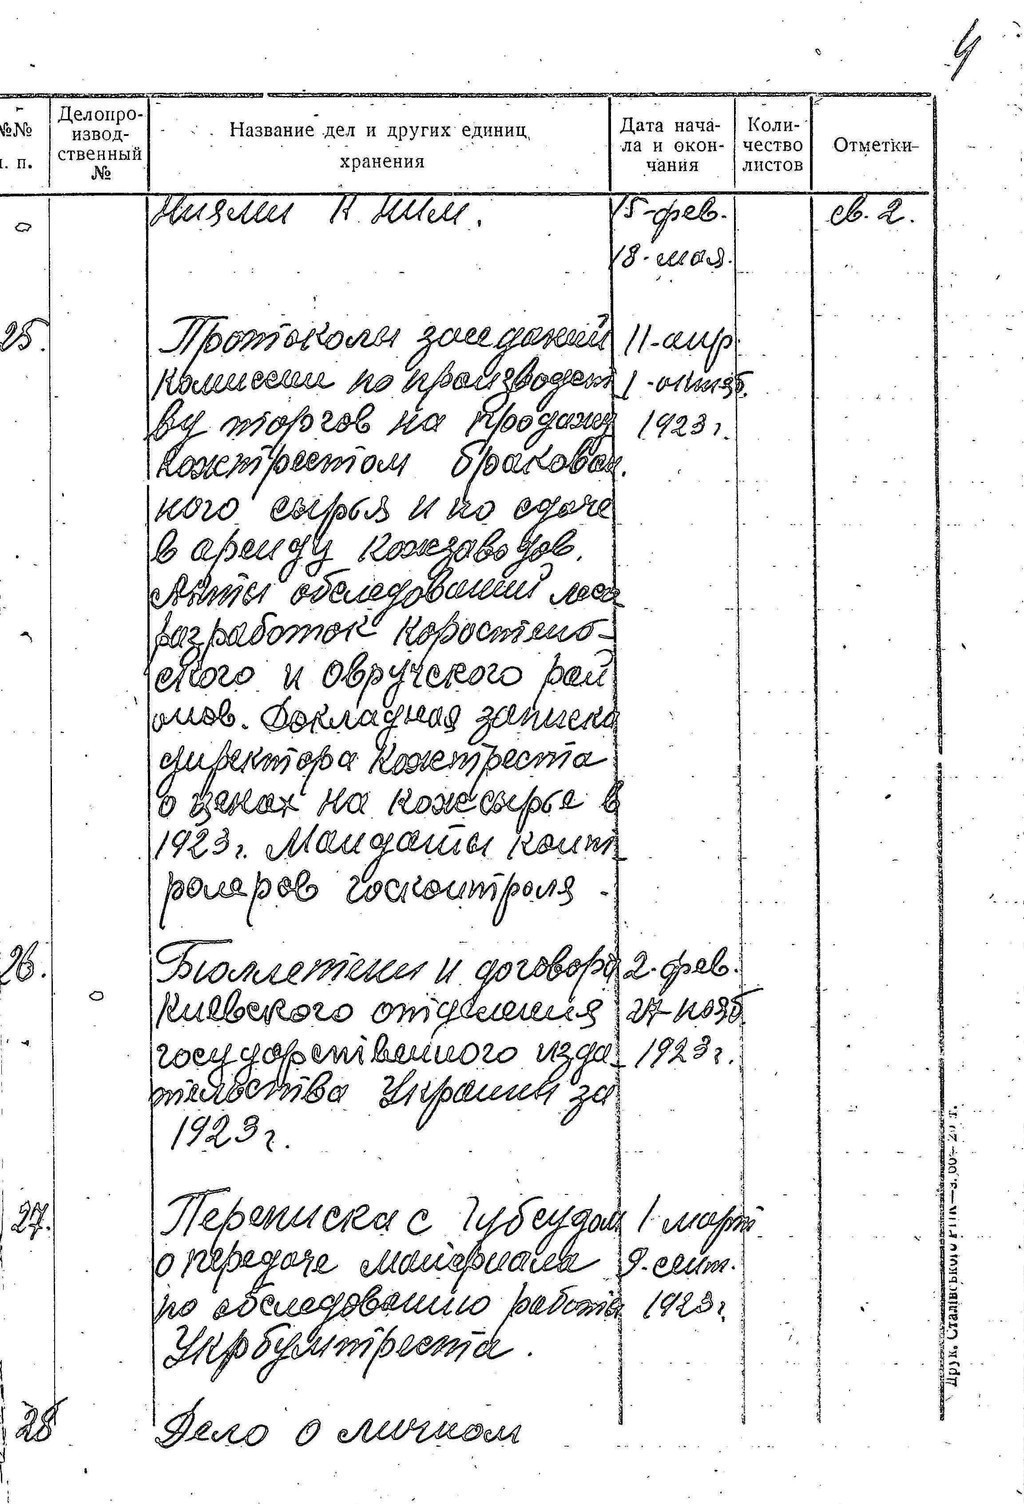 4
№№ п. п.
Делопро-
извод-
ственный
№
Название дел и других единиц
хранения
Дата нача-
ла и окон-
чания
Коли-
чество
листов
Отметки
ниями к ним. 15-фев. св. 2.
18-мая.
25. Протоколы заседаний 11-апр.
комиссии по производст 1-октяб.
ву торгов на продажу 1923 г.
кожтрестом бракован
ного сырья и по сдаче
в аренду кожзаводов.
Акты обследований лесо
разработок Коростенс-
ского и Овручского рай
онов. Докладная записка
директора Кожтреста
о ценах на кожсырье в
1923 г. Мандаты конт
ролеров госконтроля.
26. Бюллетени и договора 2-фев.
Киевского отделения 27-нояб.
государственного изда 1923 г.
тельства Украины за
1923 г.
27. Переписка с Губсудом 1 март
о передаче материала 9-сент.
по обследованию работы 1923 г.
Укрбумтреста.
28 Дело о личном
Друк. Сталінського